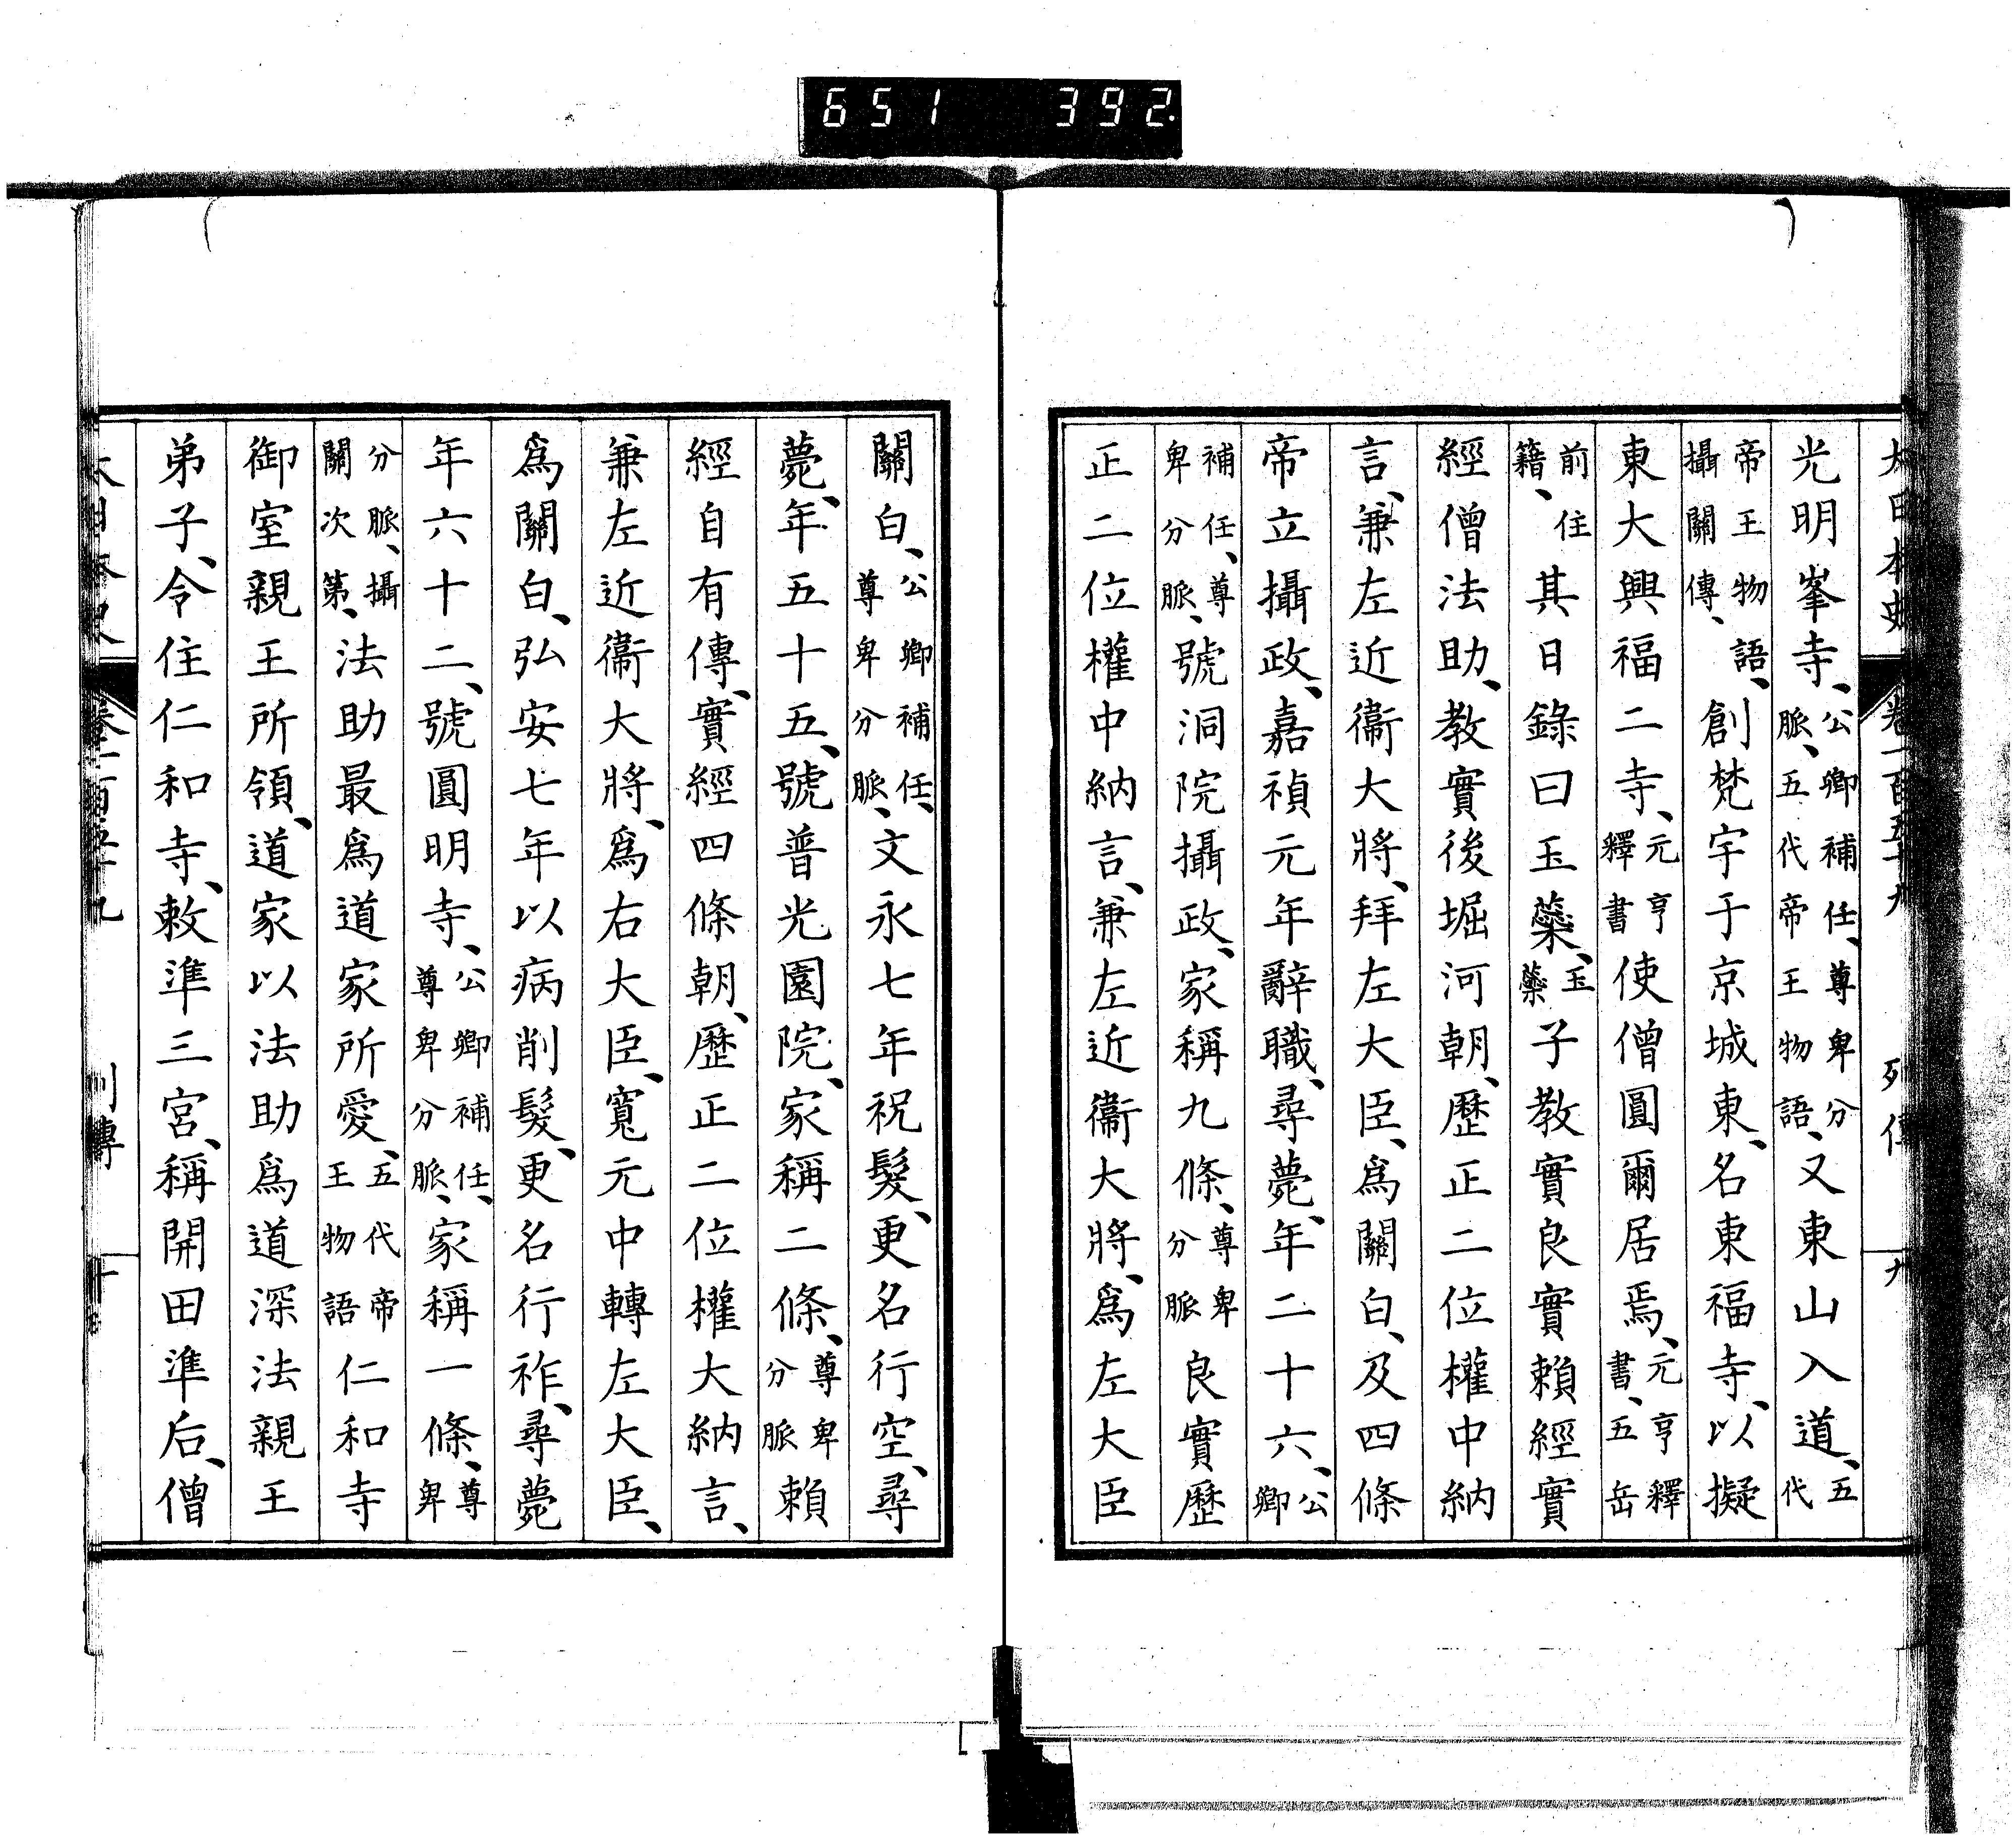 651 392.
大日本史 卷一百五十九 列傳 九
光明峯寺、公卿補任、尊卑分脈、五代帝王物語、又東山入道、五代
帝王物語、攝關傳、創梵宇于京城東、名東福寺、以擬
東大興福二寺、元亨釋書使僧圓爾居焉、元亨釋書、五岳
前住籍、其日錄曰玉蘂、玉蘂子教實良實賴經實
經僧法助、教實後堀河朝、歷正二位權中納
言、兼左近衞大將、拜左大臣、爲關白、及四條
帝立攝政、嘉禎元年辭職、尋薨、年二十六、公卿
補任、尊卑分脈、號洞院攝政、家稱九條、尊卑分脈良實歷
正二位權中納言、兼左近衞大將、爲左大臣
關白、公卿補任、尊卑分脈、文永七年祝髮、更名行空、尋
薨、年五十五、號普光園院、家稱二條、尊卑分脈賴
經自有傳、實經四條朝、歷正二位權大納言、
兼左近衞大將、爲右大臣、寬元中轉左大臣、
爲關白、弘安七年以病削髮、更名行祚、尋薨
年六十二、號圓明寺、公卿補任、尊卑分脈、家稱一條、尊卑
分脈、攝關次第、法助最爲道家所愛、五代帝王物語仁和寺
御室親王所領、道家以法助爲道深法親王
弟子、令住仁和寺、敕準三宮、稱開田準后、僧
大日本史 卷一百五十九 列傳 十